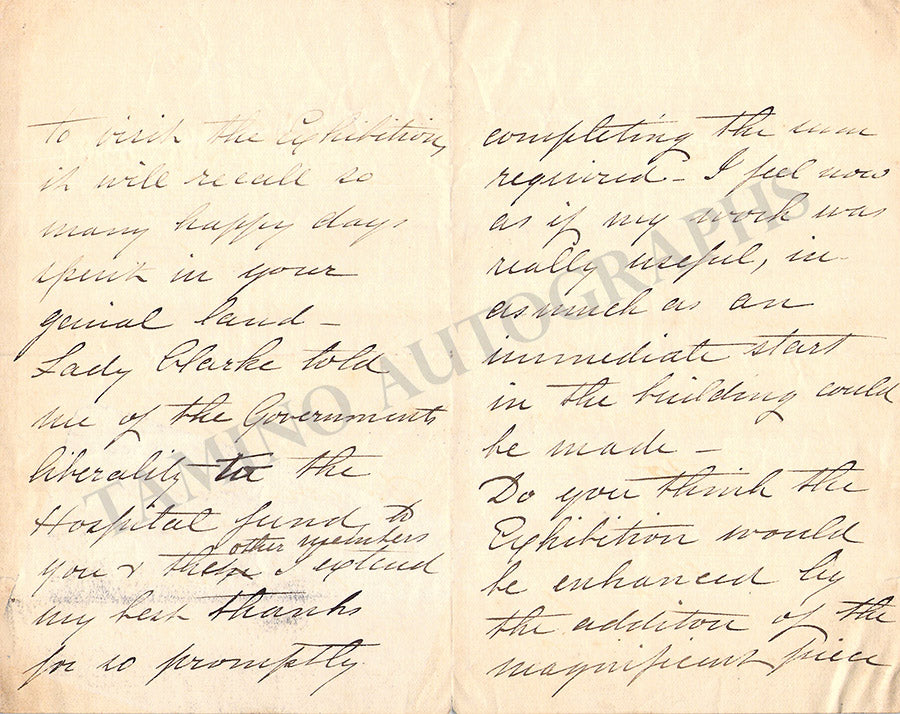 to visit the Exhibition,
it will recall so
many happy days
spent in your
genial land –
Lady Clarke told
me of the Governments
liberality to the
Hospital fund, to
other members
you & these I extend
my best thanks
for so promptly
completing the sum
required – I feel now
as if my work was
really useful, in
asmuch as an
immediate start
in the building could
be made –
Do you think the
Exhibition would
be enhanced by
the additon of the
magnificent piece
TAMINO AUTOGRAPHS